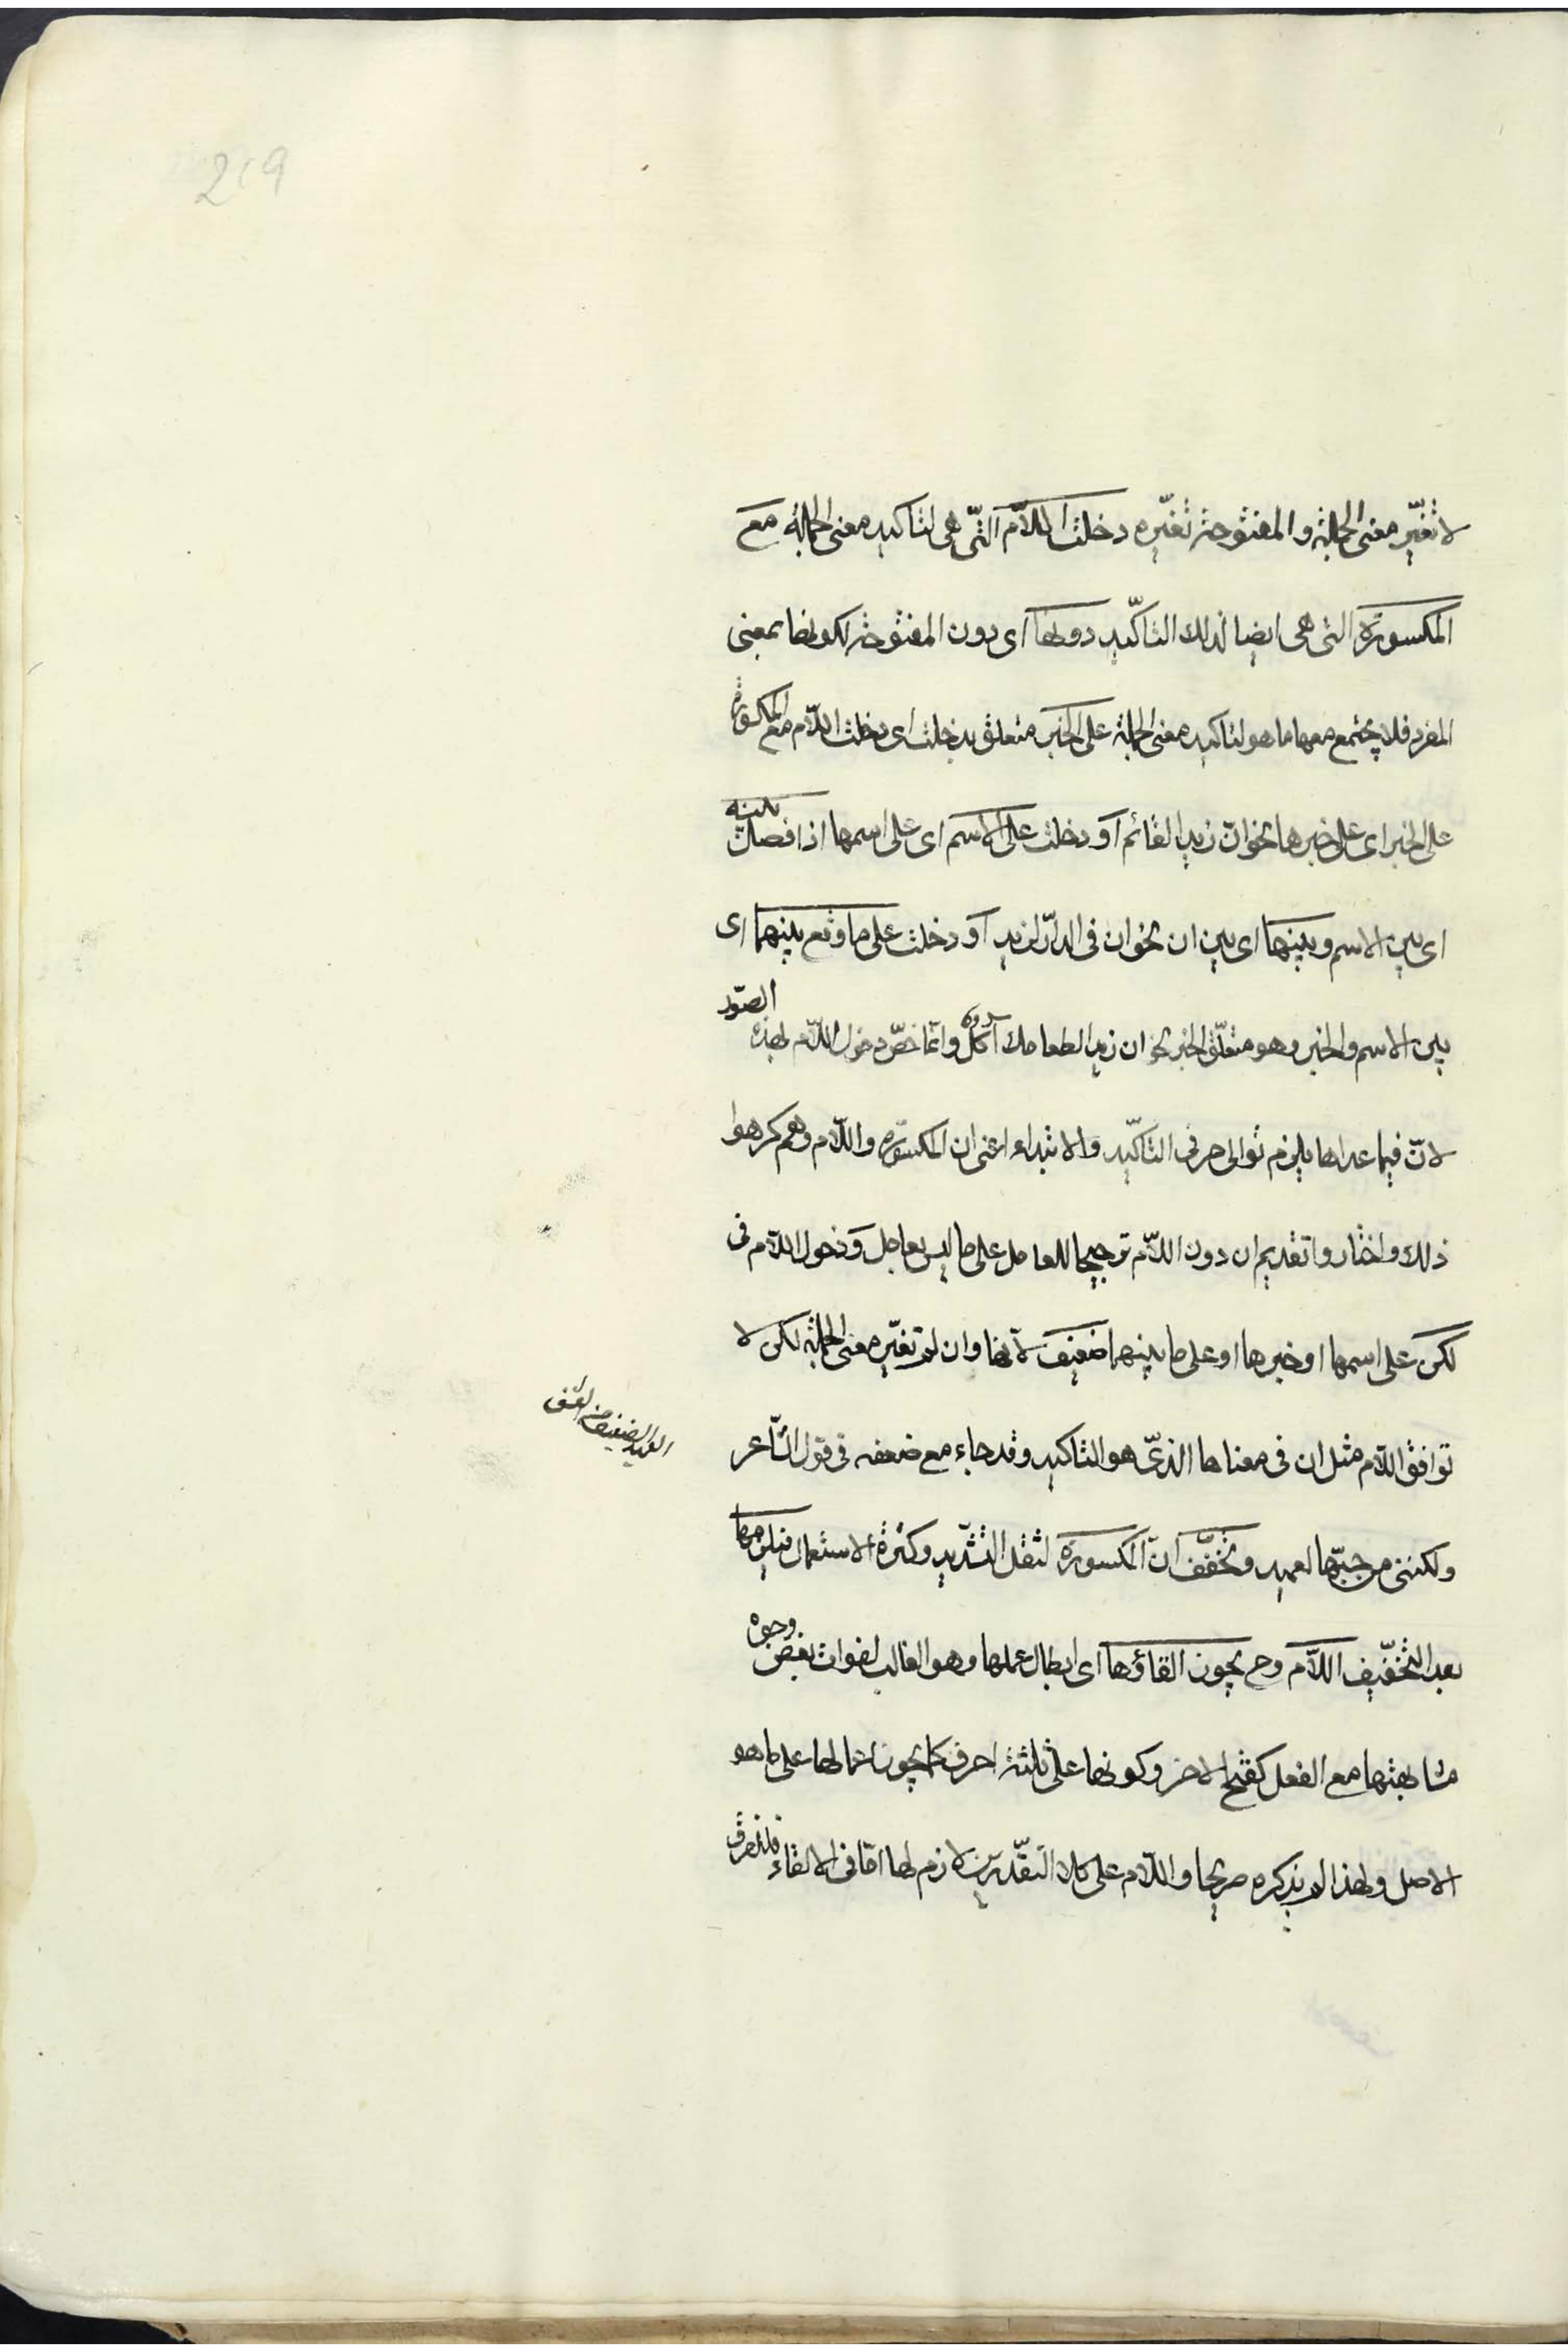 219
لا تغيّر معنى الجملة والمفتوحة تغيّره دخلت اللّام الّتي هي لتاكيد معنى الجملة مع
المكسورة التي هي ايضا لذلك التاكيد دونها اى دون المفتوحة لكونها بمعنى
المفرد فلا يجتمع معها ما هو لتاكيد معنى الجملة على الخبر متعلق بدخلت اى دخلت اللّام مع المكسورة
على الخبر اى على خبرها نحو انّ زيدا لقائم او دخلت على الاسم اى على اسمها اذا فصلت بينه
اى بين الاسم وبينها اى بين ان نحو ان فى الدّار لزيد او دخلت على ما وقع بينهما اى
بين الاسم والخبر وهو متعلّق الخبر نحو ان زيدا لطعامك آكل وانّما خصّ دخول اللّام بهذه الصّور
لانّ فيما عداها يلزم توالى حرفى التّاكيد والابتداء اعنى ان المكسورة واللّام وهم كرهوا
ذلك واختاروا تقديم ان دون اللّام ترجيحا للعامل على ما ليس بعامل ودخول اللّام فى
لكن على اسمها او خبرها او على ما بينهما ضعيف لانّها وان لم تغيّر معنى الجملة لكن لا
توافق اللّام مثل ان فى معناها الذى هو التاكيد وقد جاء مع ضعفه فى قول الشّاعر
ولكننى من حبّها لعميد وتخفّف انّ المكسورة لثقل التشديد وكثرة الاستعمال فيلزمها
بعد التّخفيف اللّام وح يجوز الغاؤها اى ابطال عملها وهو الغالب لفوات بعض وجوه
مشابهتها مع الفعل كفتح الاخر وكونها على ثلثة احرف كما يجوز اعمالها على ما هو
الاصل ولهذا لم يذكره صريحا واللّام على كلا التّقديرين لازم لها امّا فى الالغاء فللفرق
العميد الضعيف من العشق